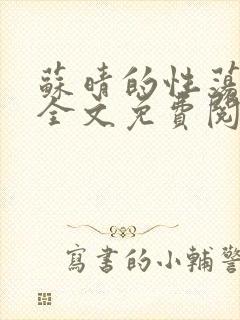 蘇晴的性蕩
全文免費閱
寫書的小輔警